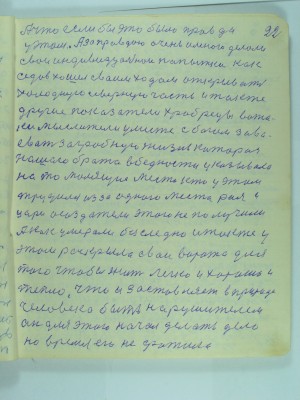 А что если бы это было правда 92.
у том. А за правдою очень много делали
свои индивидуальной попытки как
седов хотел своим ходом открывать
холодную северную часть и толете
другие показатели храбрецы
и мыслители умеете с боем заво-
евать загробную жизнь которая
нашего брата в бедности указывала
на это место кто у этом
трудился из за одного места рая а
царю создателю этого не получили
А как умерали бесследно и также у
этом розкрывло свои ворота для
того чтобы жить легко и хорошо и
тепло, что и заставляет в природе
человека быть нарушителем
он для этого начал делать дело
но время его не